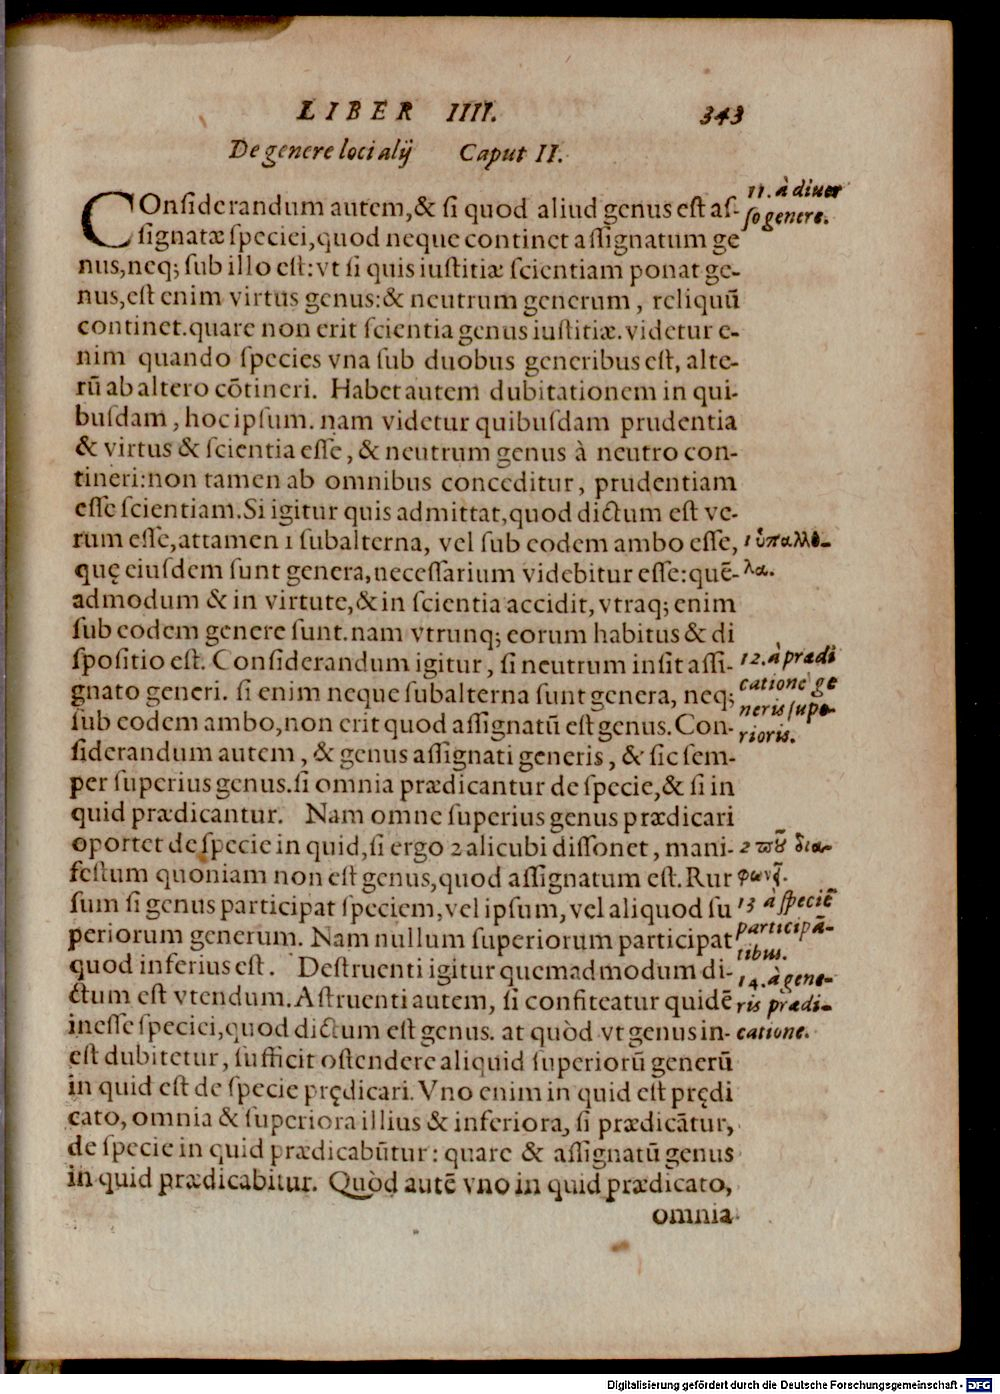 LIBER IIII. 343
De genere loci alij Caput II.
COnſiderandum autem,& ſi quod aliud genus eſt aſ-
ſignatæ ſpeciei,quod neque continet aſſignatum ge
nus,neq; ſub illo eſt:vt ſi quis iuſtitiæ ſcientiam ponat ge-
nus,eſt enim virtus genus:& neutrum generum, reliquū
continet.quare non erit ſcientia genus iuſtitiæ.videtur e-
nim quando ſpecies vna ſub duobus generibus eſt, alte-
rū ab altero cōtineri. Habet autem dubitationem in qui-
buſdam, hoc ipſum. nam videtur quibuſdam prudentia
& virtus & ſcientia eſſe, & neutrum genus à neutro con-
tineri:non tamen ab omnibus conceditur, prudentiam
eſſe ſcientiam.Si igitur quis admittat,quod dictum eſt ve-
rum eſſe,attamen 1 ſubalterna, vel ſub eodem ambo eſſe,
quę eiuſdem ſunt genera,neceſſarium videbitur eſſe:quē-
admodum & in virtute,& in ſcientia accidit, vtraq; enim
ſub eodem genere ſunt.nam vtrunq; eorum habitus & di
ſpoſitio eſt. Conſiderandum igitur, ſi neutrum inſit aſſi-
gnato generi. ſi enim neque ſubalterna ſunt genera, neq;
ſub eodem ambo,non erit quod aſſignatū eſt genus. Con-
ſiderandum autem, & genus aſſignati generis, & ſic ſem-
per ſuperius genus.ſi omnia prædicantur de ſpecie,& ſi in
quid prædicantur. Nam omne ſuperius genus prædicari
oportet de ſpecie in quid,ſi ergo 2 alicubi diſſonet, mani-
feſtum quoniam non eſt genus,quod aſſignatum eſt. Rur
ſum ſi genus participat ſpeciem,vel ipſum,vel aliquod ſu
periorum generum. Nam nullum ſuperiorum participat
quod inferius eſt. Deſtruenti igitur quemadmodum di-
ctum eſt vtendum. Aſtruenti autem, ſi confiteatur quidē
ineſſe ſpeciei,quod dictum eſt genus. at quòd vt genus in-
eſt dubitetur, ſufficit oſtendere aliquid ſuperiorū generū
in quid eſt de ſpecie prędicari. Vno enim in quid eſt prędi
cato, omnia & ſuperiora illius & inferiora, ſi prædicātur,
de ſpecie in quid prædicabūtur: quare & aſſignatū genus
in quid prædicabitur. Quòd autē vno in quid prædicato,
omnia
11. à diuer
ſo genere.
1 ὑπαλλη-
λα.
12. à prædi
catione ge
neris ſupe-
rioris.
2 που δια-
φωνῇ.
13 à ſpeciē
participā-
tibus.
14. à gene-
ris prædi-
catione.
Digitalisierung gefördert durch die Deutsche Forschungsgemeinschaft - DFG